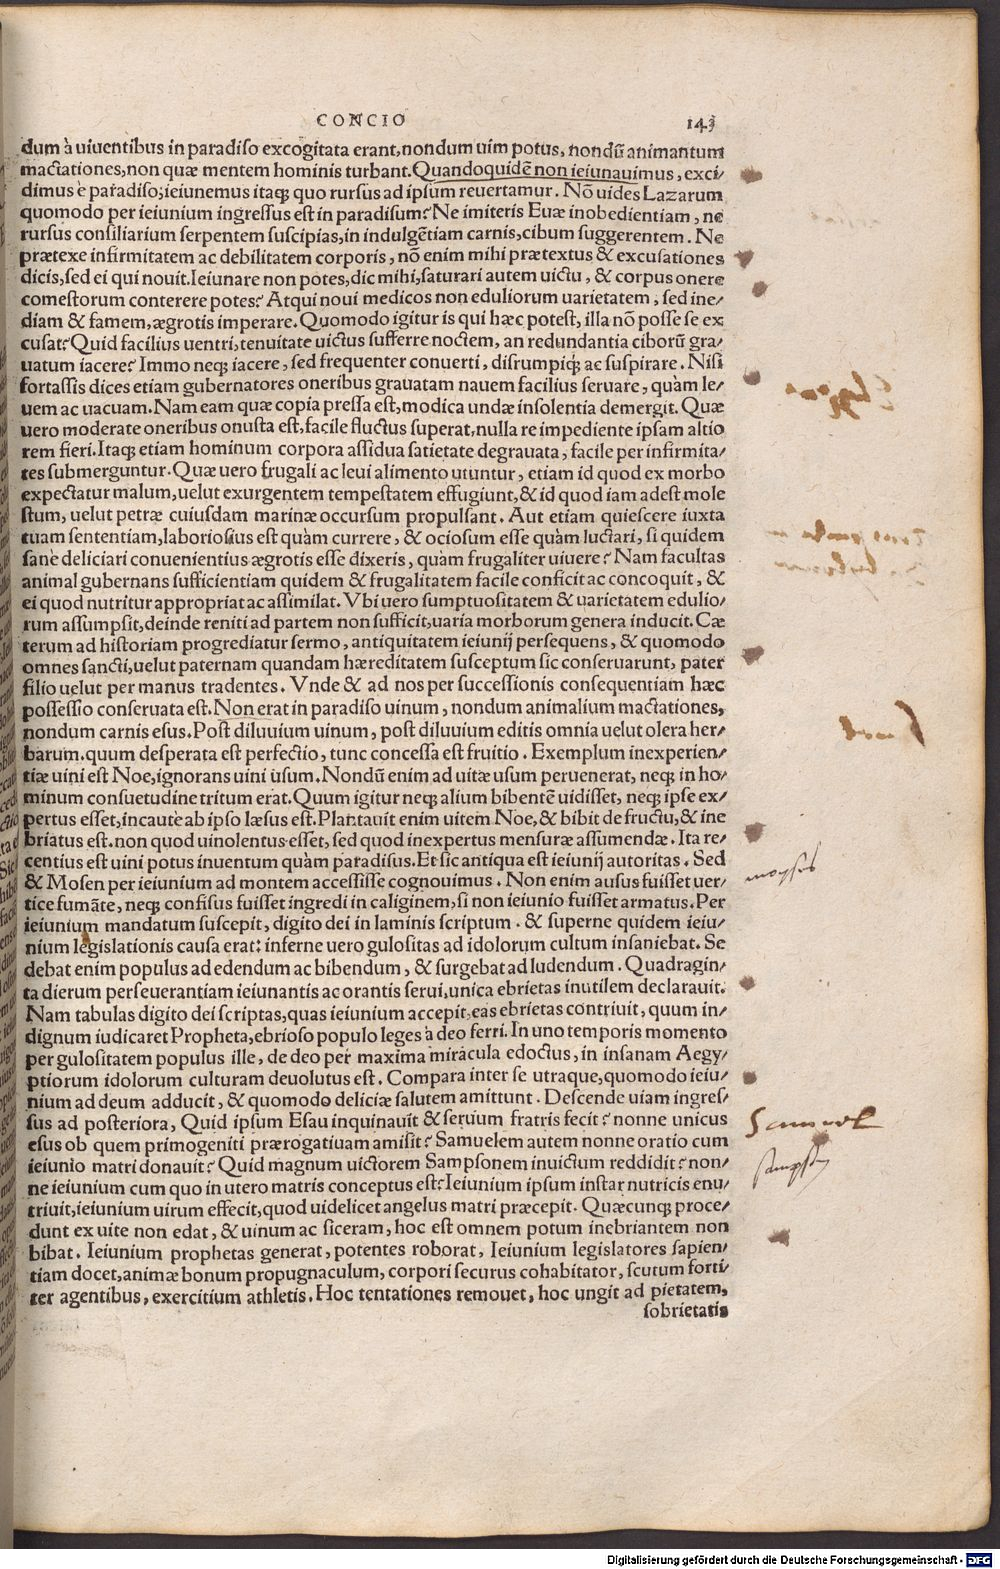 CONCIO 143
dum à uiuentibus in paradiso excogitata erant, nondum uim potus, nondū animantum
mactationes, non quæ mentem hominis turbant. Quandoquidē non ieiunauimus, exci/
dimus è paradiso; ieiunemus itaq; quo rursus ad ipsum reuertamur. Nō uides Lazarum
quomodo per ieiunium ingressus est in paradisum? Ne imiteris Euæ inobedientiam, ne
rursus consiliarium serpentem suscipias, in indulgētiam carnis, cibum suggerentem. Ne
prætexe infirmitatem ac debilitatem corporis, nō enim mihi prætextus & excusationes
dicis, sed ei qui nouit. Ieiunare non potes, dic mihi, saturari autem uictu, & corpus onere
comestorum conterere potes? Atqui noui medicos non eduliorum uarietatem, sed ine/
diam & famem, ægrotis imperare. Quomodo igitur is qui hæc potest, illa nō posse se ex
cusat? Quid facilius uentri, tenuitate uictus sufferre noctem, an redundantia ciborū gra/
uatum iacere? Immo neq; iacere, sed frequenter conuerti, disrumpiq; ac suspirare. Nisi
fortassis dices etiam gubernatores oneribus grauatam nauem facilius seruare, quàm le/
uem ac uacuam. Nam eam quæ copia pressa est, modica undæ insolentia demergit. Quæ
uero moderate oneribus onusta est, facile fluctus superat, nulla re impediente ipsam altio
rem fieri. Itaq; etiam hominum corpora assidua satietate degrauata, facile per infirmita/
tes submerguntur. Quæ uero frugali ac leui alimento utuntur, etiam id quod ex morbo
expectatur malum, uelut exurgentem tempestatem effugiunt, & id quod iam adest mole
stum, uelut petræ cuiusdam marinæ occursum propulsant. Aut etiam quiescere iuxta
tuam sententiam, laboriosius est quàm currere, & ociosum esse quàm luctari, si quidem
sanè deliciari conuenientius ægrotis esse dixeris, quàm frugaliter uiuere? Nam facultas
animal gubernans sufficientiam quidem & frugalitatem facile conficit ac concoquit, &
ei quod nutritur appropriat ac assimilat. Vbi uero sumptuositatem & uarietatem edulio/
rum assumpsit, deinde reniti ad partem non sufficit, uaria morborum genera inducit. Cæ
terum ad historiam progrediatur sermo, antiquitatem ieiunij persequens, & quomodo
omnes sancti, uelut paternam quandam hæreditatem susceptum sic conseruarunt, pater
filio uelut per manus tradentes. Vnde & ad nos per successionis consequentiam hæc
possessio conseruata est. Non erat in paradiso uinum, nondum animalium mactationes,
nondum carnis esus. Post diluuium uinum, post diluuium editis omnia uelut olera her/
barum. quum desperata est perfectio, tunc concessa est fruitio. Exemplum inexperien/
tiæ uini est Noe, ignorans uini usum. Nondū enim ad uitæ usum peruenerat, neq; in ho/
minum consuetudine tritum erat. Quum igitur neq; alium bibentē uidisset, neq; ipse ex/
pertus esset, incautè ab ipso læsus est. Plantauit enim uitem Noe, & bibit de fructu, & ine
briatus est. non quod uinolentus esset, sed quod inexpertus mensuræ assumendæ. Ita re/
centius est uini potus inuentum quàm paradisus. Et sic antiqua est ieiunij autoritas. Sed
& Mosen per ieiunium ad montem accessisse cognouimus. Non enim ausus fuisset uer/
tice fumāte, neq; confisus fuisset ingredi in caliginem, si non ieiunio fuisset armatus. Per
ieiunium mandatum suscepit, digito dei in laminis scriptum. & superne quidem ieiu/
nium legislationis causa erat: inferne uero gulositas ad idolorum cultum insaniebat. Se
debat enim populus ad edendum ac bibendum, & surgebat ad ludendum. Quadragin/
ta dierum perseuerantiam ieiunantis ac orantis serui, unica ebrietas inutilem declarauit.
Nam tabulas digito dei scriptas, quas ieiunium accepit, eas ebrietas contriuit, quum in/
dignum iudicaret Propheta, ebrioso populo leges à deo ferri. In uno temporis momento
per gulositatem populus ille, de deo per maxima miracula edoctus, in insanam Aegy/
ptiorum idolorum culturam deuolutus est. Compara inter se utraque, quomodo ieiu/
nium ad deum adducit, & quomodo deliciæ salutem amittunt. Descende uiam ingres/
sus ad posteriora, Quid ipsum Esau inquinauit & seruum fratris fecit? nonne unicus
esus ob quem primogeniti prærogatiuam amisit? Samuelem autem nonne oratio cum
ieiunio matri donauit? Quid magnum uictorem Sampsonem inuictum reddidit? non/
ne ieiunium cum quo in utero matris conceptus est? Ieiunium ipsum instar nutricis enu/
triuit, ieiunium uirum effecit, quod uidelicet angelus matri præcepit. Quæcunq; proce/
dunt ex uite non edat, & uinum ac siceram, hoc est omnem potum inebriantem non
bibat. Ieiunium prophetas generat, potentes roborat, Ieiunium legislatores sapien/
tiam docet, animæ bonum propugnaculum, corpori securus cohabitator, scutum forti/
ter agentibus, exercitium athletis. Hoc tentationes remouet, hoc ungit ad pietatem,
sobrietatis
moyses
Samuel
sampson
Digitalisierung gefördert durch die Deutsche Forschungsgemeinschaft - DFG